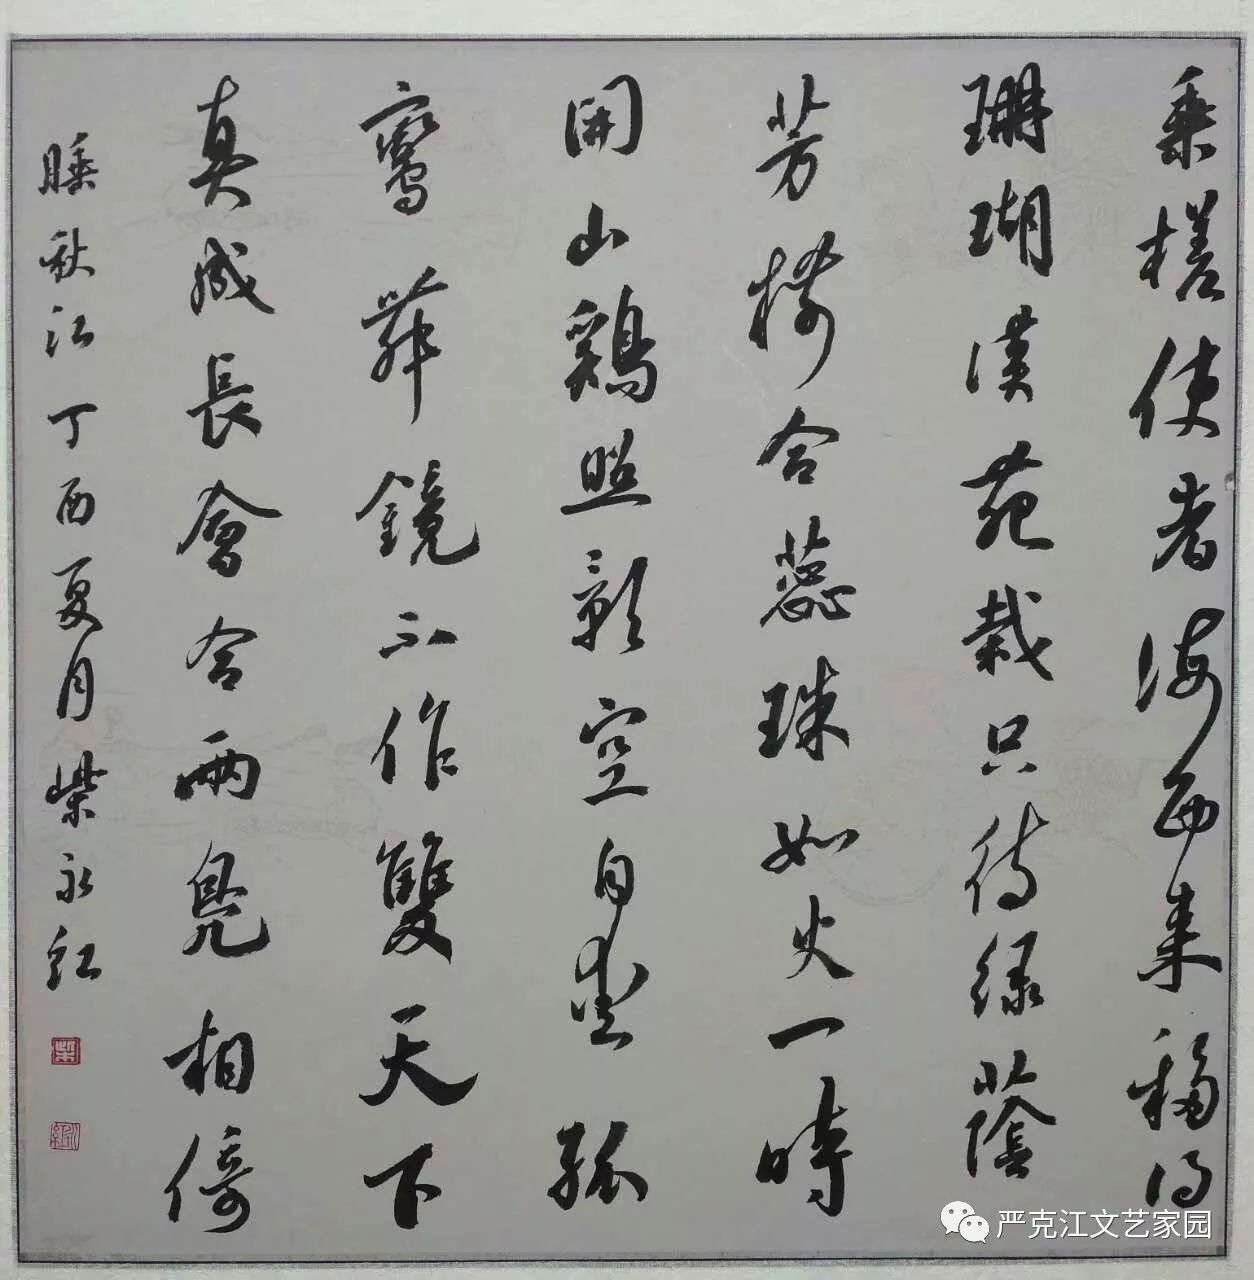 乘槎使者海西来移得
珊瑚汉苑栽只待绿蔭
芳樹合蕊珠如火一時
開山鷄照影空自愛孤
鸞舞鏡不作雙天下
真成長會合兩鳧相倚
睡秋江丁酉夏月柴永红
严克江文艺家园